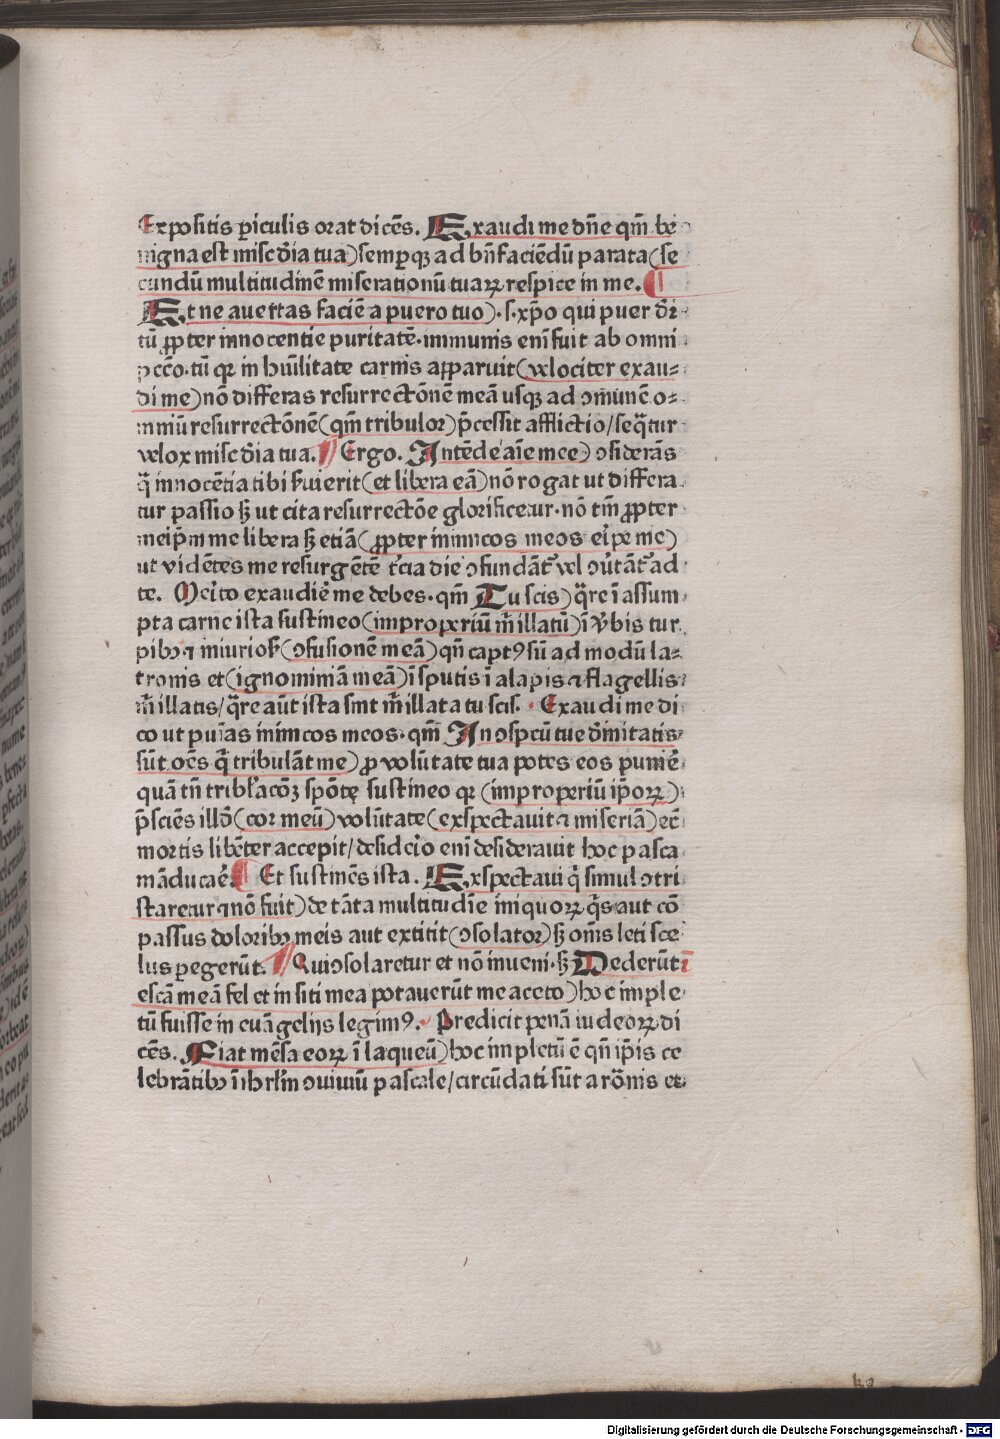 Expositis ꝑiculis orat dicēs. Exaudi me dn̄e qm̄ be
nigna est misc̄dia tua) semꝑqꝫ ad bn̄faciēdū parata (se
cundū multitudinē miserationū tuaꝝ respice in me. ¶
Et ne auertas faciē a puero tuo) · s · xp̄o qui puer dr̄
tū ꝓpter innocentie puritatē · immunis eni fuit ab omni
pccō · tū qꝛ in hūilitate carnis apparuit (velociter exau⸗
di me) nō differas resurrectōnē meā usqꝫ ad ꝯmunē o⸗
mniū resurrectōnē (qm̄ tribulor) p̄cessit afflictio / seq̄tur
velox misc̄dia tua. ¶ Ergo. Intēde aīe mee) ꝯsiderās
q̄ innocētia tibi fuierit (et libera eā) nō rogat ut differa
tur passio sꝫ ut cita resurrectōe glorificetur · nō tm̄ ꝓpter
meip̄m me libera sꝫ etiā (ꝓpter inimicos meos eripe me)
ut vidētes me resurgētē t̄cia die ꝯfundāt᷑ vel ꝯūtāt᷑ ad
te. Merito exaudiē me debes · qm̄ Tu scis) q̄re i assum
pta carne ista sustineo (improperiū m̄ illatū) ī v̄bis tur
pibꝫ ⁊ iniuriosꝭ (ꝯfusionē meā) qn̄ captꝰ sū ad modū la⸗
tronis et (ignominiā meā) ī sputis ī alapis ⁊ flagellis
m̄ illatis / q̄re aūt ista sint m̄ illata tu scis. Exaudi me di
co ut puīas inimicos meos · qm̄ In ꝯspcū tue dīnitatis
sūt oēs q̄ tribulāt me) ꝓ volūtate tua potes eos puniē
quā tn̄ tribl̄acōꝫ spōte sustineo qꝛ (improperiū ip̄oꝝ)
p̄sciēs illd̄ (cor meū) volūtate (exspectauit ⁊ miseriā) ec̄
mortis libēter accepit / desiderio eni desiderauit hoc pasca
māducaē. ¶ Et sustinēs ista. Exspectaui q̄ simul ꝯtri
staretur ⁊ nō fuit) de tāta multitudīe iniquoꝝ q̄s aut cō
passus doloribꝫ meis aut extitit (ꝯsolator) sꝫ om̄s leti sce
lus ꝑegerūt. ¶ Qui ꝯsolaretur et nō inueni · sꝫ Dederūt ī
escā meā fel et in siti mea potauerūt me aceto) hoc imple
tū fuisse in euāgeliis legimꝰ. Predicit penā iudeoꝝ di
cēs. Fiat mēsa eoꝝ ī laqueū) hoc impletū ē qn̄ ip̄is ce
lebrātibꝫ ī ihrl̄m ꝯuiuiū pascale / circūdati sūt a rōnis et
Digitalisierung gefördert durch die Deutsche Forschungsgemeinschaft - DFG